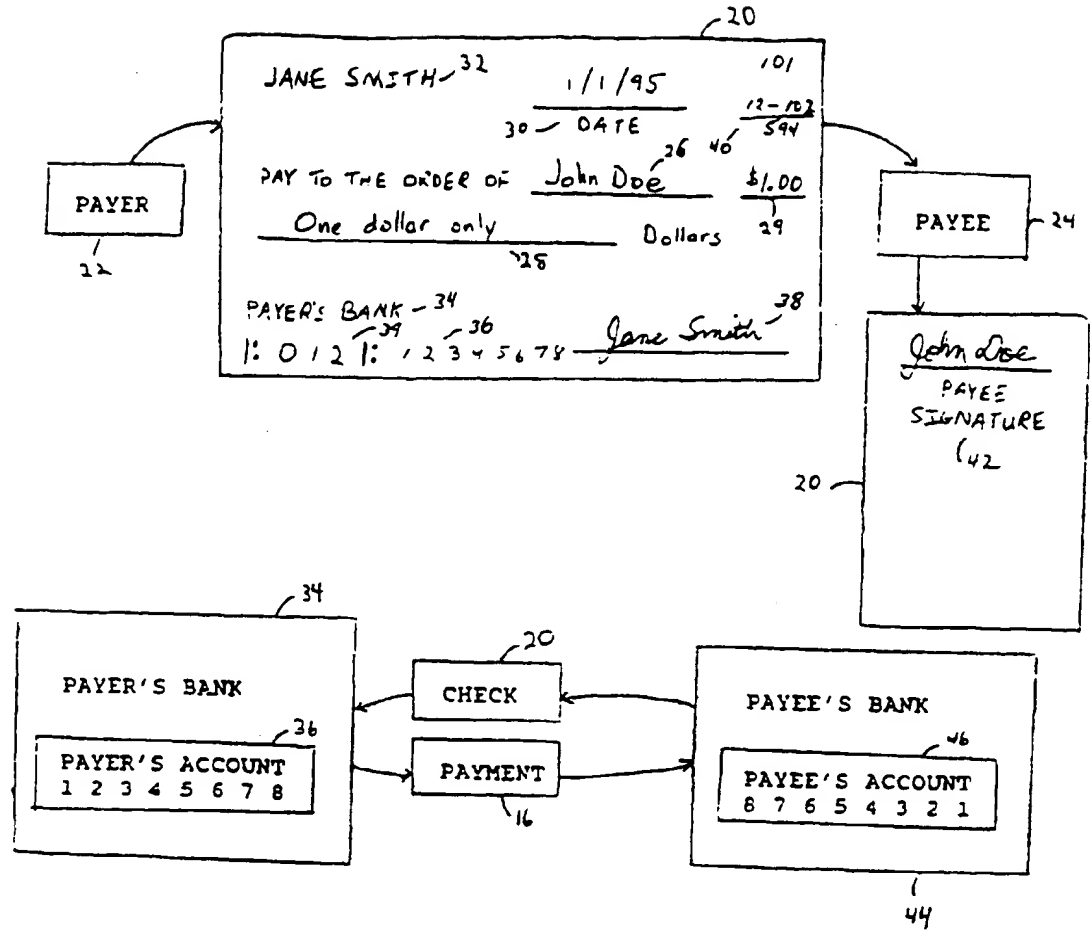 20
JANE SMITH 32
101
1/1/95
30 DATE
12-102
594
40
PAY TO THE ORDER OF John Doe 26 $1.00
29
One dollar only Dollars
28
PAYER'S BANK 34
39 36
|: 0 1 2 |: 1 2 3 4 5 6 7 8 Jane Smith 38
PAYER
22
PAYEE 24
John Doe
PAYEE
SIGNATURE
42
20
34
PAYER'S BANK
36
PAYER'S ACCOUNT
1 2 3 4 5 6 7 8
20
CHECK
PAYMENT
16
PAYEE'S BANK
46
PAYEE'S ACCOUNT
8 7 6 5 4 3 2 1
44